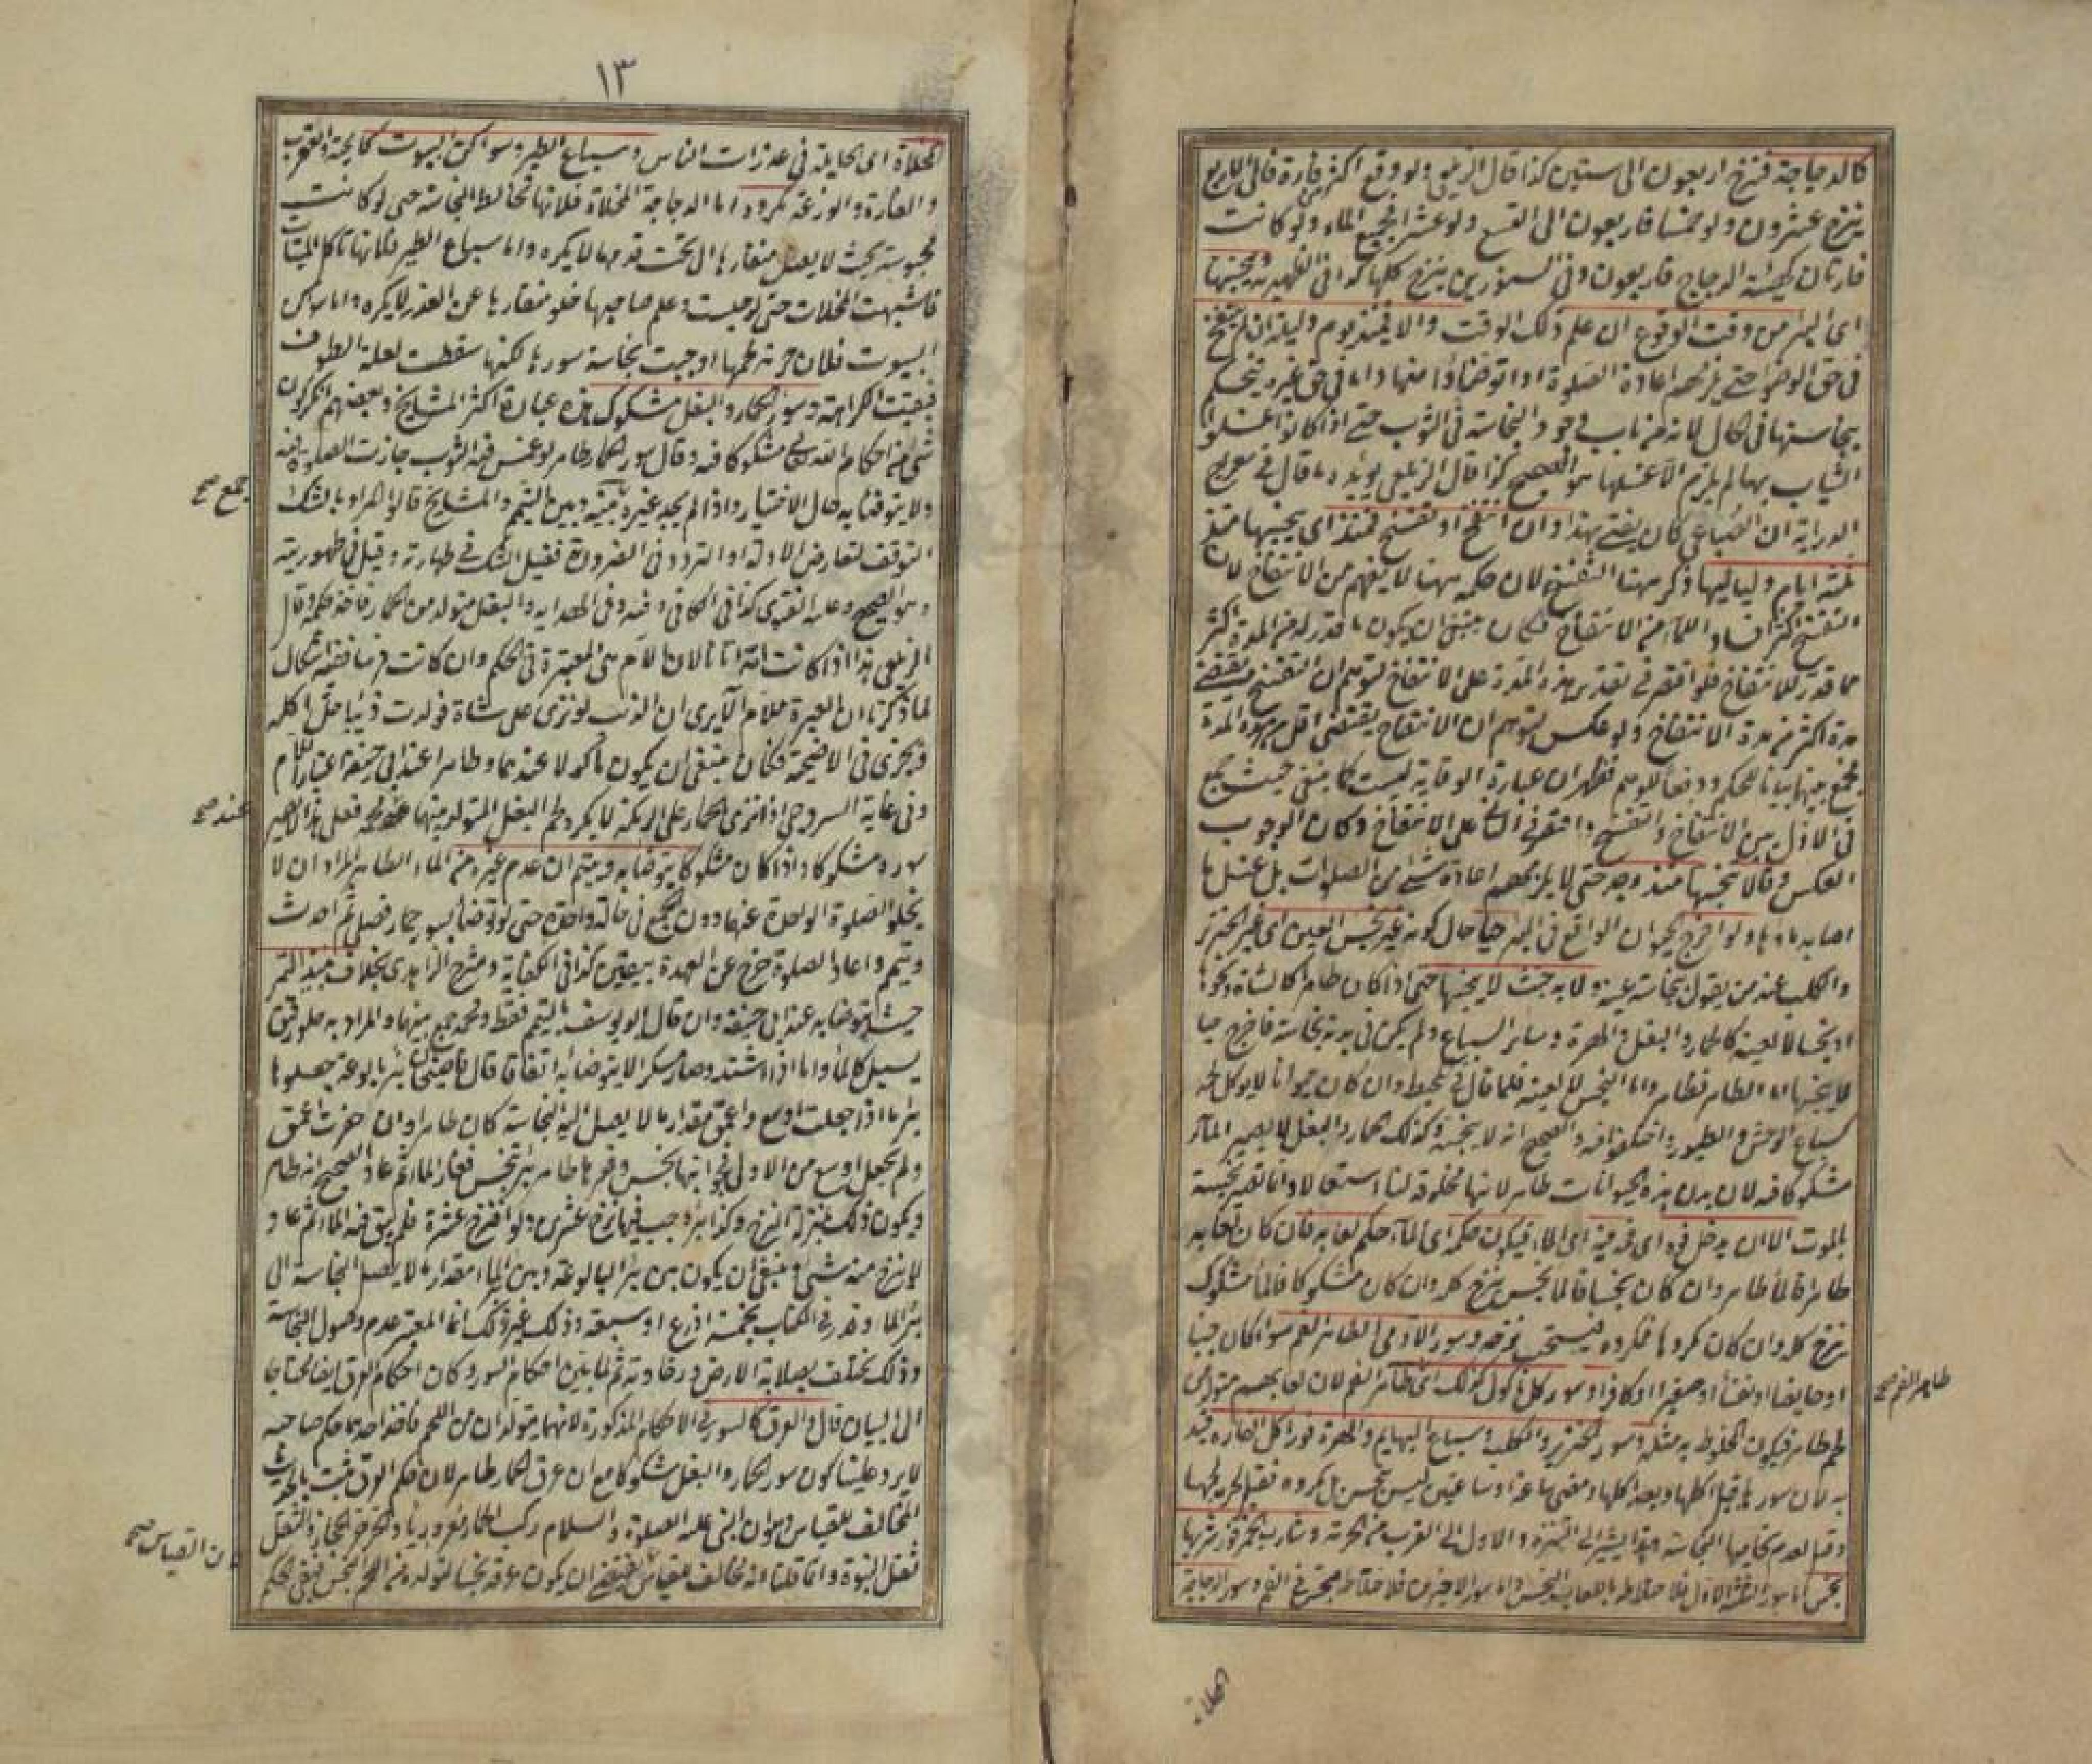 كالدجاجة فينزح اربعون الى ستين كذا قال الزيلعي ولو وقع اكثر من فارة فالى الاربع
ينزح عشرون ولو خمسا فاربعون الى التسع ولو عشرا فجميع الماء ولو كانت
فارتان كهيئة الدجاج فاربعون وفي السنورين ينزح كلها كذا في الظهيرية ونجسها
اى البئر من وقت الوقوع ان علم ذلك الوقت والا فمنذ يوم وليلة ان لم ينتفخ
في حق الوضوء حتى يلزمهم اعادة الصلوة اذا توضأوا منها واما في حق غيره فيحكم
بنجاستها في الحال لانه من باب وجود النجاسة في الثوب حتى اذا كانوا غسلوا
الثياب بها لم يلزم الا غسلها هو الصحيح كذا قال الزيلعي يؤيده ما قال في معراج
الدراية ان الصباغي كان يفتي بهذا وان انتفخ او تفسخ فمنذ اى نجسها منذ
ثلثة ايام ولياليها ذكر هنا التفسخ لان حكمه هنا لا يفهم من الانتفاخ لان
التفسخ اكثر افسادا للماء من الانتفاخ فكان ينبغي ان يكون ما قدر له من المدة اكثر
مما قدر للانتفاخ فلو اقتصر في تقدير هذه المدة على الانتفاخ لتوهم ان التفسخ يقتضي
مدة اكثر من مدة الانتفاخ ولو عكس لتوهم ان الانتفاخ يقتضي اقل من هذه المدة
فجمع بينهما بيانا للحكم ودفعا للوهم فظهر ان عبارة الوقاية ليست كما ينبغي حيث جمع
في الاول بين الانتفاخ والتفسخ واقتصر في الثاني على الانتفاخ وكان الوجوب
العكس وقالا نجسها منذ وجد حتى لا يلزمهم اعادة شئ من الصلوات بل غسل ما
اصابه ماؤها ولو اخرج الحيوان الواقع في البئر حيا حال كونه غير نجس العين اى غير الخنزير
والكلب عند من يقول بنجاسة عينه ولا به خبث لا ينجسها حتى اذا كان طاهرا كالشاة ونحوها
او نجسا لا لعينه كالحمار والبغل والهرة وسائر السباع ولم يكن في بدنه نجاسة فاخرج حيا
لا ينجسها اما الطاهر فظاهر واما النجس لا لعينه فلما قال في المحيط وان كان حيوانا لا يوكل لحمه
كسباع الوحش والطيور اختلفوا فيه والصحيح انه لا ينجسه وكذلك الحمار والبغل لا يصير الماء
مشكوكا فيه لان بدن هذه الحيوانات طاهر لانها مخلوقة لنا استعمالا وانما تصير نجسة
بالموت الا ان يدخل فوه اى فمه فيه اى الماء فيكون حكمه اى الماء حكم لعابه فان كان لعابه
طاهرا فالماء طاهر وان كان نجسا فالماء نجس ينزح كله وان كان مشكوكا فالماء مشكوك
ينزح كله وان كان مكروها فمكروه فيستحب نزحه وسور الآدمي الطاهر الفم سواء كان جنبا
او حايضا او نفساء او صغيرا او كافرا وسور كل ماكول كذلك اى طاهر الفم لان لعابهم متولد من
طاهر الفم صح
لحم طاهر فيكون المخلوط به مثله وسور الخنزير والكلب وسباع البهايم والهرة فور اكل الفارة قيد
به لان سورها قبل اكلها وبعد اكلها ومضى ساعة او ساعتين ليس بنجس بل مكروه فقيل لحرمة لحمها
وقيل لعدم تحاميها النجاسة وهذا يشير الى التنزه والاول الى القرب من الحرمة وشارب الخمر فور شربها
نجس اما سور الثلثة الاول فلاختلاطه باللعاب النجس واما سور الاخيرين فلاختلاطه بنجس في الفم وسور الدجاجة
المخلاة
١٣
المخلاة اى الجايلة في عذرات الناس وسباع الطير وسواكن البيوت كالحية والعقرب
والفارة والوزغة مكروه اما الدجاجة المخلاة فلانها تخالط النجاسة حتى لو كانت
محبوسة بحيث لا يصل منقارها الى تحت قدمها لا يكره واما سباع الطير فلانها تاكل الميتات
فاشبهت المخلاة حتى لو حبست وعلم صاحبها خلو منقارها عن القذر لا يكره واما سواكن
البيوت فلان حرمة لحمها اوجبت نجاسة سورها لكنها سقطت لعلة الطوف
فبقيت الكراهة وسور الحمار والبغل مشكوك هذه عبارة اكثر المشايخ وبعضهم انكر كون
شئ من احكام الله تعالى مشكوكا فيه وقال سور الحمار طاهر لو غمس فيه الثوب جازت الصلوة فيه
ولا يتوضأ به حال الاختيار واذا لم يجد غيره يجمع بينه وبين التيمم والمشايخ قالوا المراد بالشك
جمع صح
التوقف لتعارض الادلة او التردد في الضرورة فقيل الشك في طهارته وقيل في طهوريته
وهو الصحيح وعليه الفتوى كذا في الكافي وفيه وفي الهداية والبغل متولد من الحمار فاخذ حكمه وقال
الزيلعي هذا اذا كانت امه اتانا لان الام هى المعتبرة في الحكم وان كانت فرسا ففيه اشكال
لما ذكرنا ان العبرة للام الا يرى ان الذئب لو نزى على شاة فولدت ذئبا حل اكله
ويجزى في الاضحية فكان ينبغي ان يكون ماكولا عندهما وطاهرا عند ابي حنيفة اعتبارا للام
وفي غاية السروجي اذا نزى الحمار على الرمكة لا يكره لحم البغل المتولد بينهما عند محمد فعلى هذا لا يصير
عند صح
سوره مشكوكا واذا كان مشكوكا يتوضأ به ويتيمم ان عدم غيره من الماء الطاهر المراد ان لا
يخلو الصلوة الواحدة عنهما دون الجمع في حالة واحدة حتى لو توضأ بسور حمار فصلى ثم احدث
وتيمم واعاد الصلوة خرج عن العهدة بيقين كذا في الكفاية وشرح الزاهدي بخلاف نبيذ التمر
حيث يتوضأ به عند ابي حنيفة وان قال ابو يوسف بالتيمم فقط ومحمد جمع بينهما والمراد به حلو رقيق
يسيل كالماء واما اذا اشتد وصار مسكرا لا يتوضأ به اتفاقا قال قاضيخان بئر بالوعة جعلوها
بئر ماء اذا جعلت اوسع واعمق مقدار ما لا يصل اليه النجاسة كان طاهرا وان حفرت اعمق
ولم يجعل اوسع من الاولى فجوانبها نجس وقعرها طاهر بئر تنجس فغار الماء ثم عاد الصحيح انه طاهر
ويكون ذلك بمنزلة النزح وكذا بئر وجب فيها نزح عشرين دلوا فنزح عشرة فلم يبق فيه الماء ثم عاد
لا ينزح منه شئ وينبغي ان يكون بين بئر البالوعة وبين الماء مقدار ما لا يصل النجاسة الى
بئر الماء وقدر في الكتاب بخمسة اذرع او سبعة وذلك غير ذلك انما المعتبر عدم وصول النجاسة
وذلك يختلف بصلابة الارض ورخاوته ثم لما بين احكام السور وكان احكام العرق ايضا محتاجا
الى البيان قال والعرق كالسور في الاحكام المذكورة لانهما متولدان من اللحم فاخذ احدهما حكم صاحبه
لا يرد علينا كون سور الحمار والبغل مشكوكا مع ان عرق الحمار طاهر لان حكم العرق ثبت بالحديث
المخالف للقياس وهو ان النبي عليه الصلوة والسلام ركب الحمار معروريا والحر حر الحجاز والثقل
ثقل النبوة وانما قلنا انه مخالف للقياس لان القياس يقتضي ان يكون عرقه نجسا لتولده من اللحم النجس فبقي الحكم
لان القياس صح